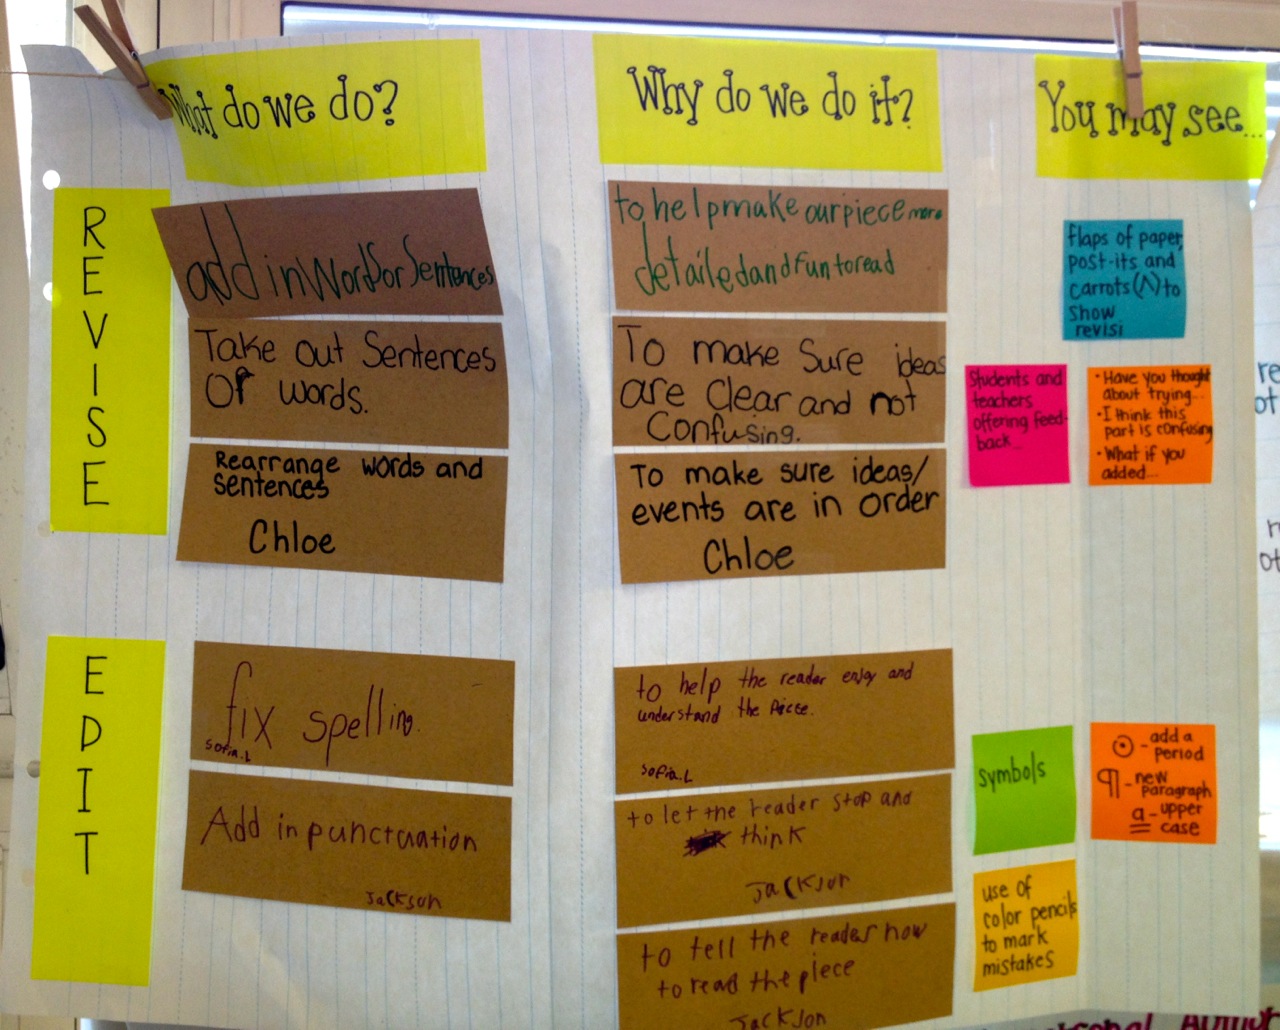 What do we do?
Why do we do it?
You may see...
REVISE
add in words or sentences
to help make our piece more
detailed and fun to read
flaps of paper,
post-its and
carrots (^) to
show
revisi
Take out Sentences
Or words.
To make Sure ideas
are clear and not
Confusing.
Students and
teachers
offering feed-
back...
• Have you thought
about trying...
• I think this
part is confusing
• What if you
added...
Rearrange words and
sentences
Chloe
To make sure ideas/
events are in order
Chloe
EDIT
fix spelling
Sofia.L
to help the reader enjoy and
understand the Piece.
Sofia.L
symbols
⊙ - add a
period
¶ - new
paragraph
a - upper
case
Add in punctuation
Jackson
to let the reader stop and
think
Jackson
use of
color pencils
to mark
mistakes
to tell the reader how
to read the piece
Jackson